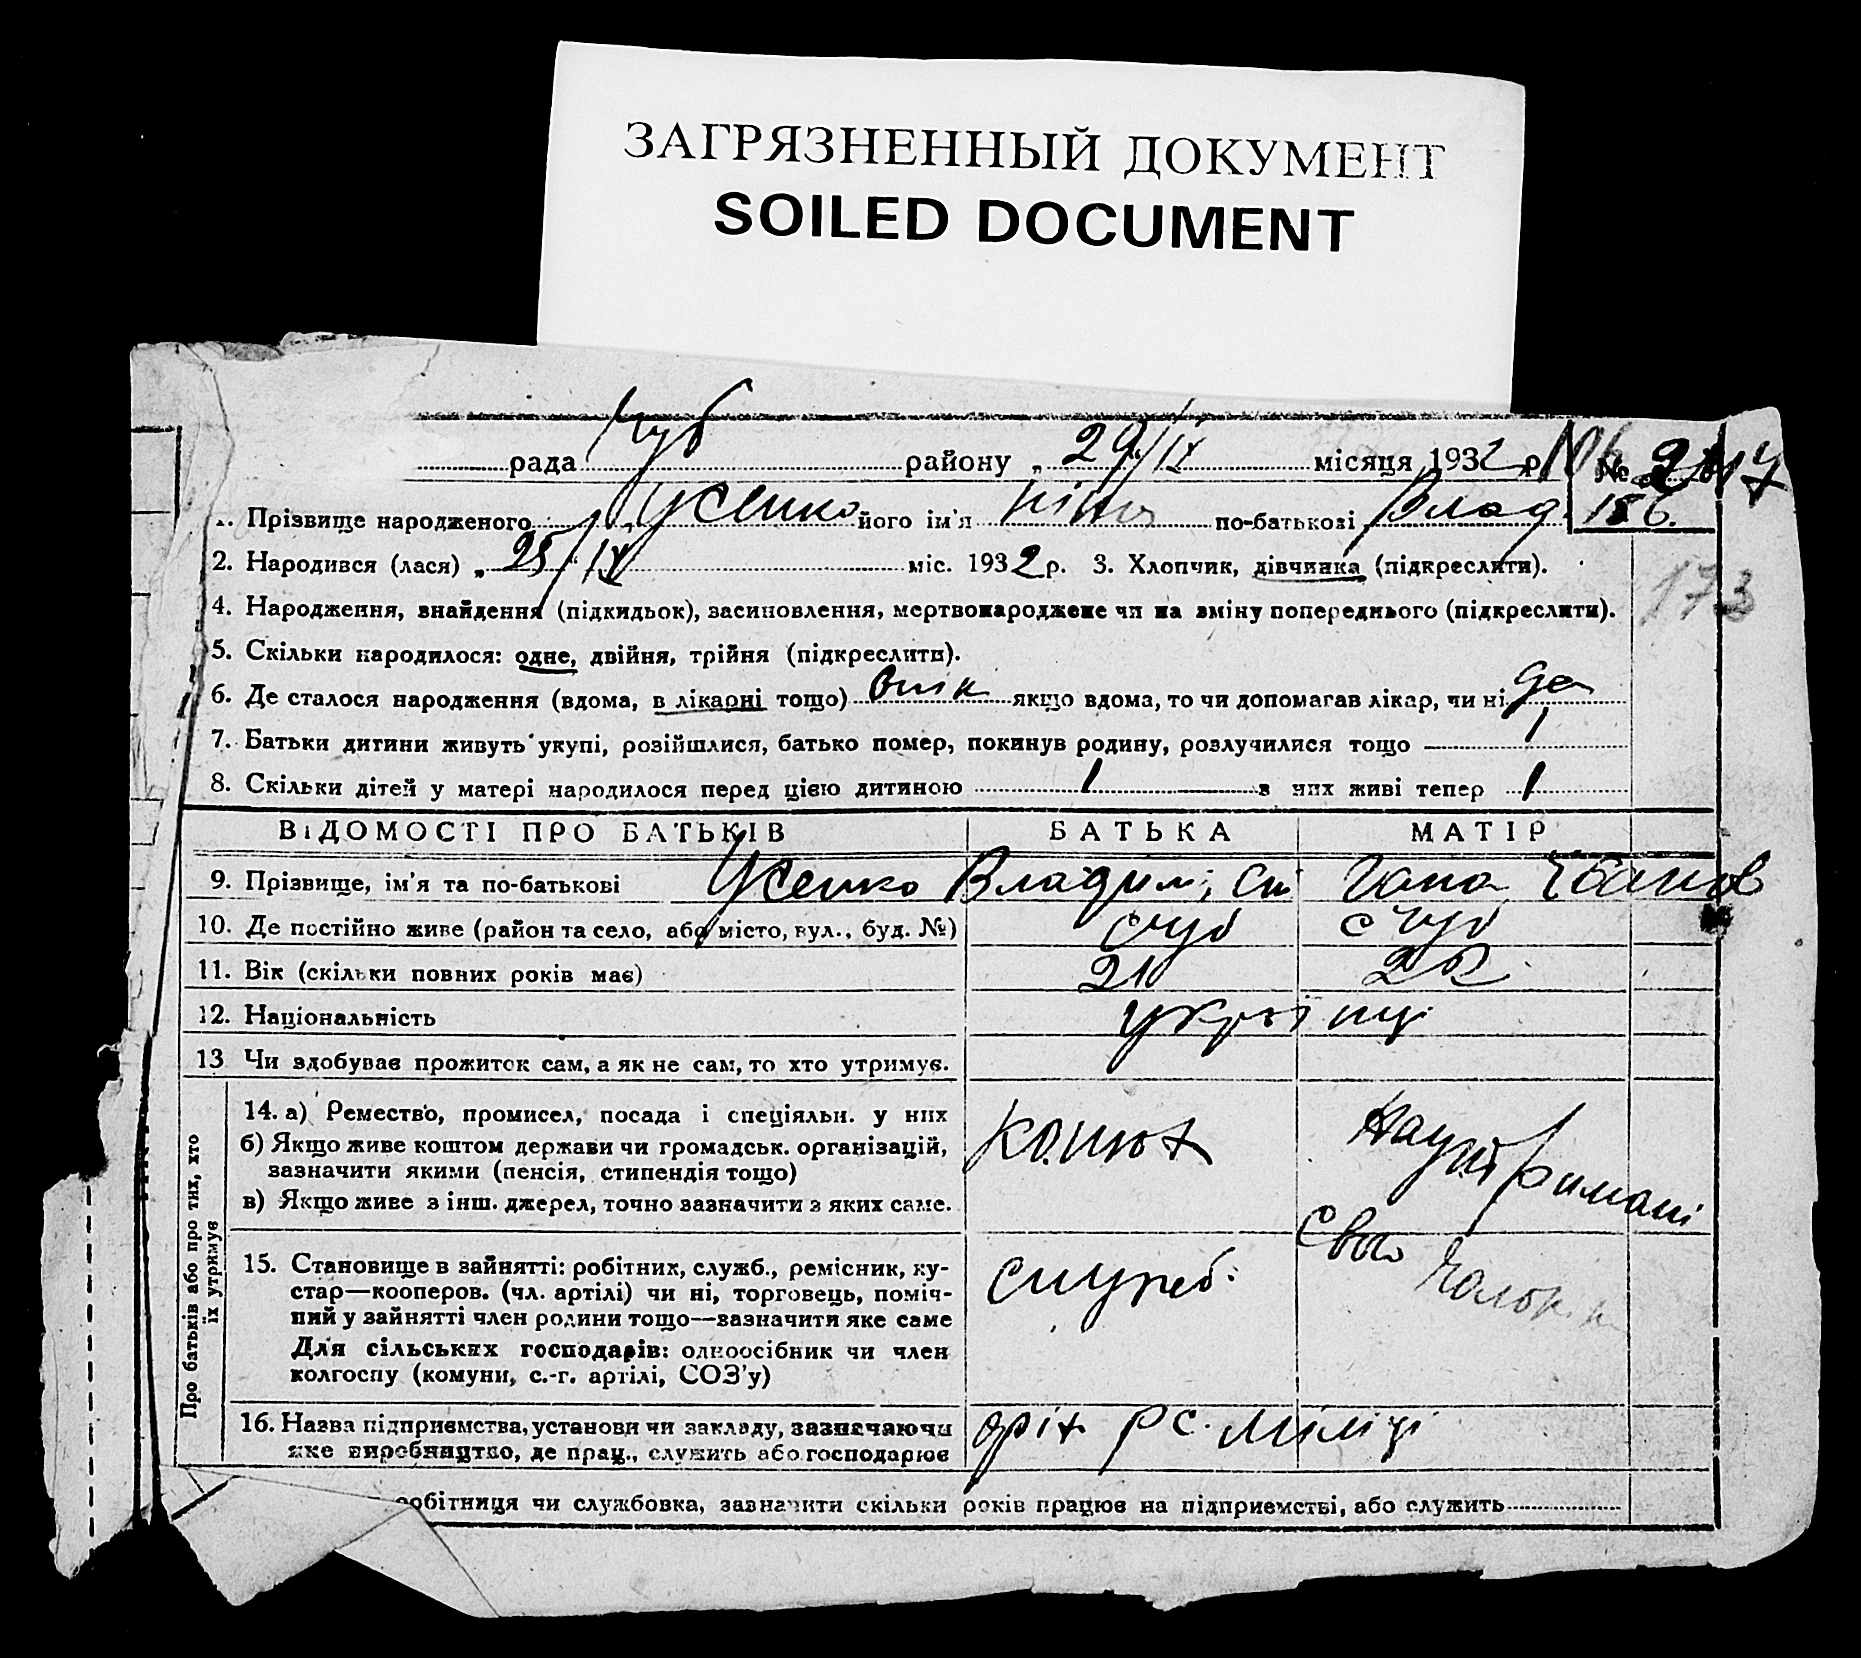 ЗАГРЯЗНЕННЫЙ ДОКУМЕНТ
SOILED DOCUMENT
рада Чуб району „ 29/IX місяця 1932 р. №
1. Прізвище народженого Усенко його ім'я Ніна по-батькові Влад. 186.
2. Народився (лася) „ 25/IX міс. 1932 р. 3. Хлопчик, дівчинка (підкреслити).
173
4. Народження, знайдення (підкидьок), засиновлення, мертвонароджене чи на зміну попереднього (підкреслити).
5. Скільки народилося: одне, двійня, трійня (підкреслити).
6. Де сталося народження (вдома, в лікарні тощо) якщо вдома, то чи допомагав лікар, чи ні да
7. Батьки дитини живуть укупі, розійшлися, батько помер, покинув родину, розлучилися тощо
8. Скільки дітей у матері народилося перед цією дитиною 1 з них живі тепер 1
ВІДОМОСТІ ПРО БАТЬКІВ БАТЬКА МАТІР
9. Прізвище, ім'я та по-батькові Усенко Владим;
10. Де постійно живе (район та село, або місто, вул., буд. №) с Чуб с Чуб
11. Вік (скільки повних років має) 21 22
12. Національність українці
13 Чи здобуває прожиток сам, а як не сам, то хто утримує.
Про батьків або про тих, хто їх утримує
14. а) Ремество, промисел, посада і спеціяльн. у них конюх на утримані
б) Якщо живе коштом держави чи громадськ. організацій,
зазначити якими (пенсія, стипендія тощо)
в) Якщо живе з інш. джерел, точно зазначити з яких саме.
свого чоловіка
15. Становище в зайнятті: робітник, служб., ремісник, ку-
стар—кооперов. (чл. артілі) чи ні, торговець, поміч-
ний у зайнятті член родини тощо—зазначити яке саме
Для сільських господарів: одноосібник чи член
колгоспу (комуни, с.-г. артілі, СОЗ'у)
служб.
16. Назва підприємства, установи чи закладу, зазначаючи
яке виробництво, де прац., служить або господарює
РС. міліці
робітниця чи службовка, зазначити скільки років працює на підприємстві, або служить